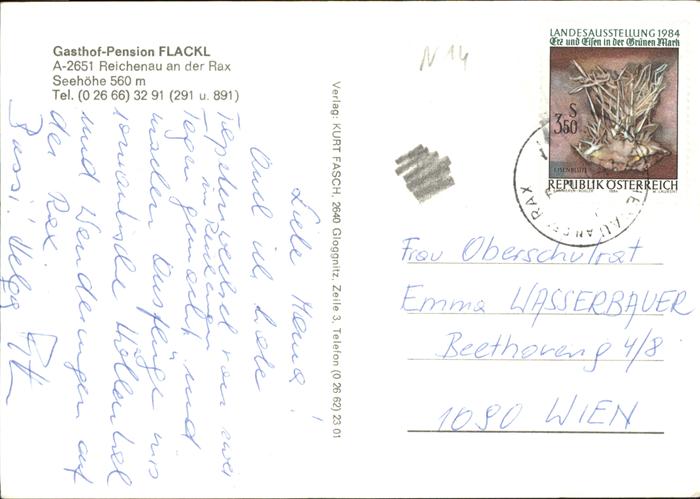 Gasthof-Pension FLACKL
A-2651 Reichenau an der Rax
Seehöhe 560 m
Tel. (0 26 66) 32 91 (291 u. 891)
N 14
LANDESAUSSTELLUNG 1984
Erz und Eisen in der Grünen Mark
S
3.50
EISENBLÜTE
REPUBLIK ÖSTERREICH
AN DER RAX
Verlag: KURT FASCH, 2640 Gloggnitz, Zeile 3, Telefon (0 26 62) 23 01
Liebe Mama!
Auch ich habe
von zwei
Tagen gemacht und
machen Ausflüge ins
romantische Höllental
und Wanderungen auf
der Rax.
Bussi! Helga
Frau Oberschulrat
Emma WASSERBAUER
Beethoveng 4/8
1090 WIEN